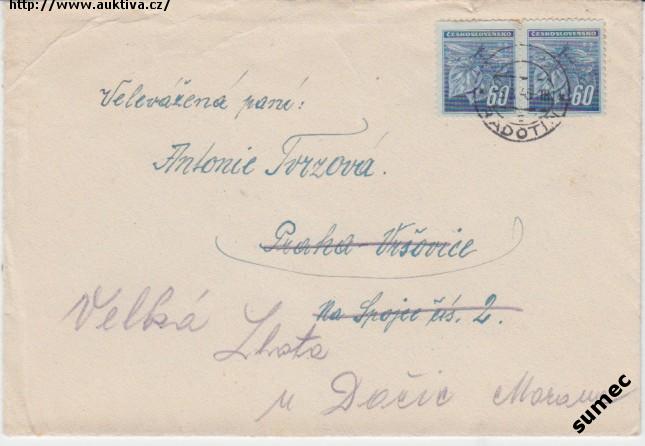 http://www.auktiva.cz/
ČESKOSLOVENSKO ČESKOSLOVENSKO
60 60
RADOTÍN
Velevážená paní:
Antonie Tvrzová.
Praha-Vršovice
Na Spojci čís. 2.
Velká
Lhota
u Dačic Morava
sumec